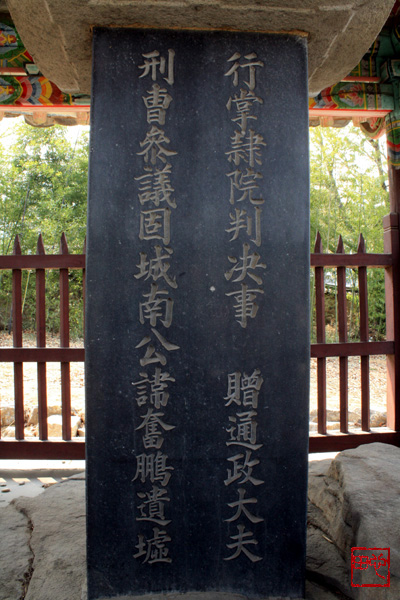 行掌隷院判决事 贈通政大夫
刑曺叅議固城南公諱奮鵬遺墟